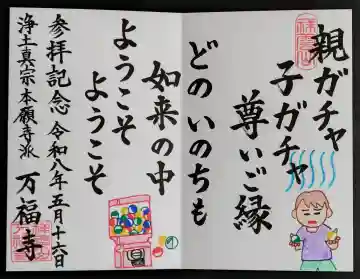 親ガチャ
子ガチャ
尊いご縁
どのいのちも
如来の中
ようこそ
ようこそ
参拝記念 令和八年五月十六日
浄土真宗本願寺派 万福寺